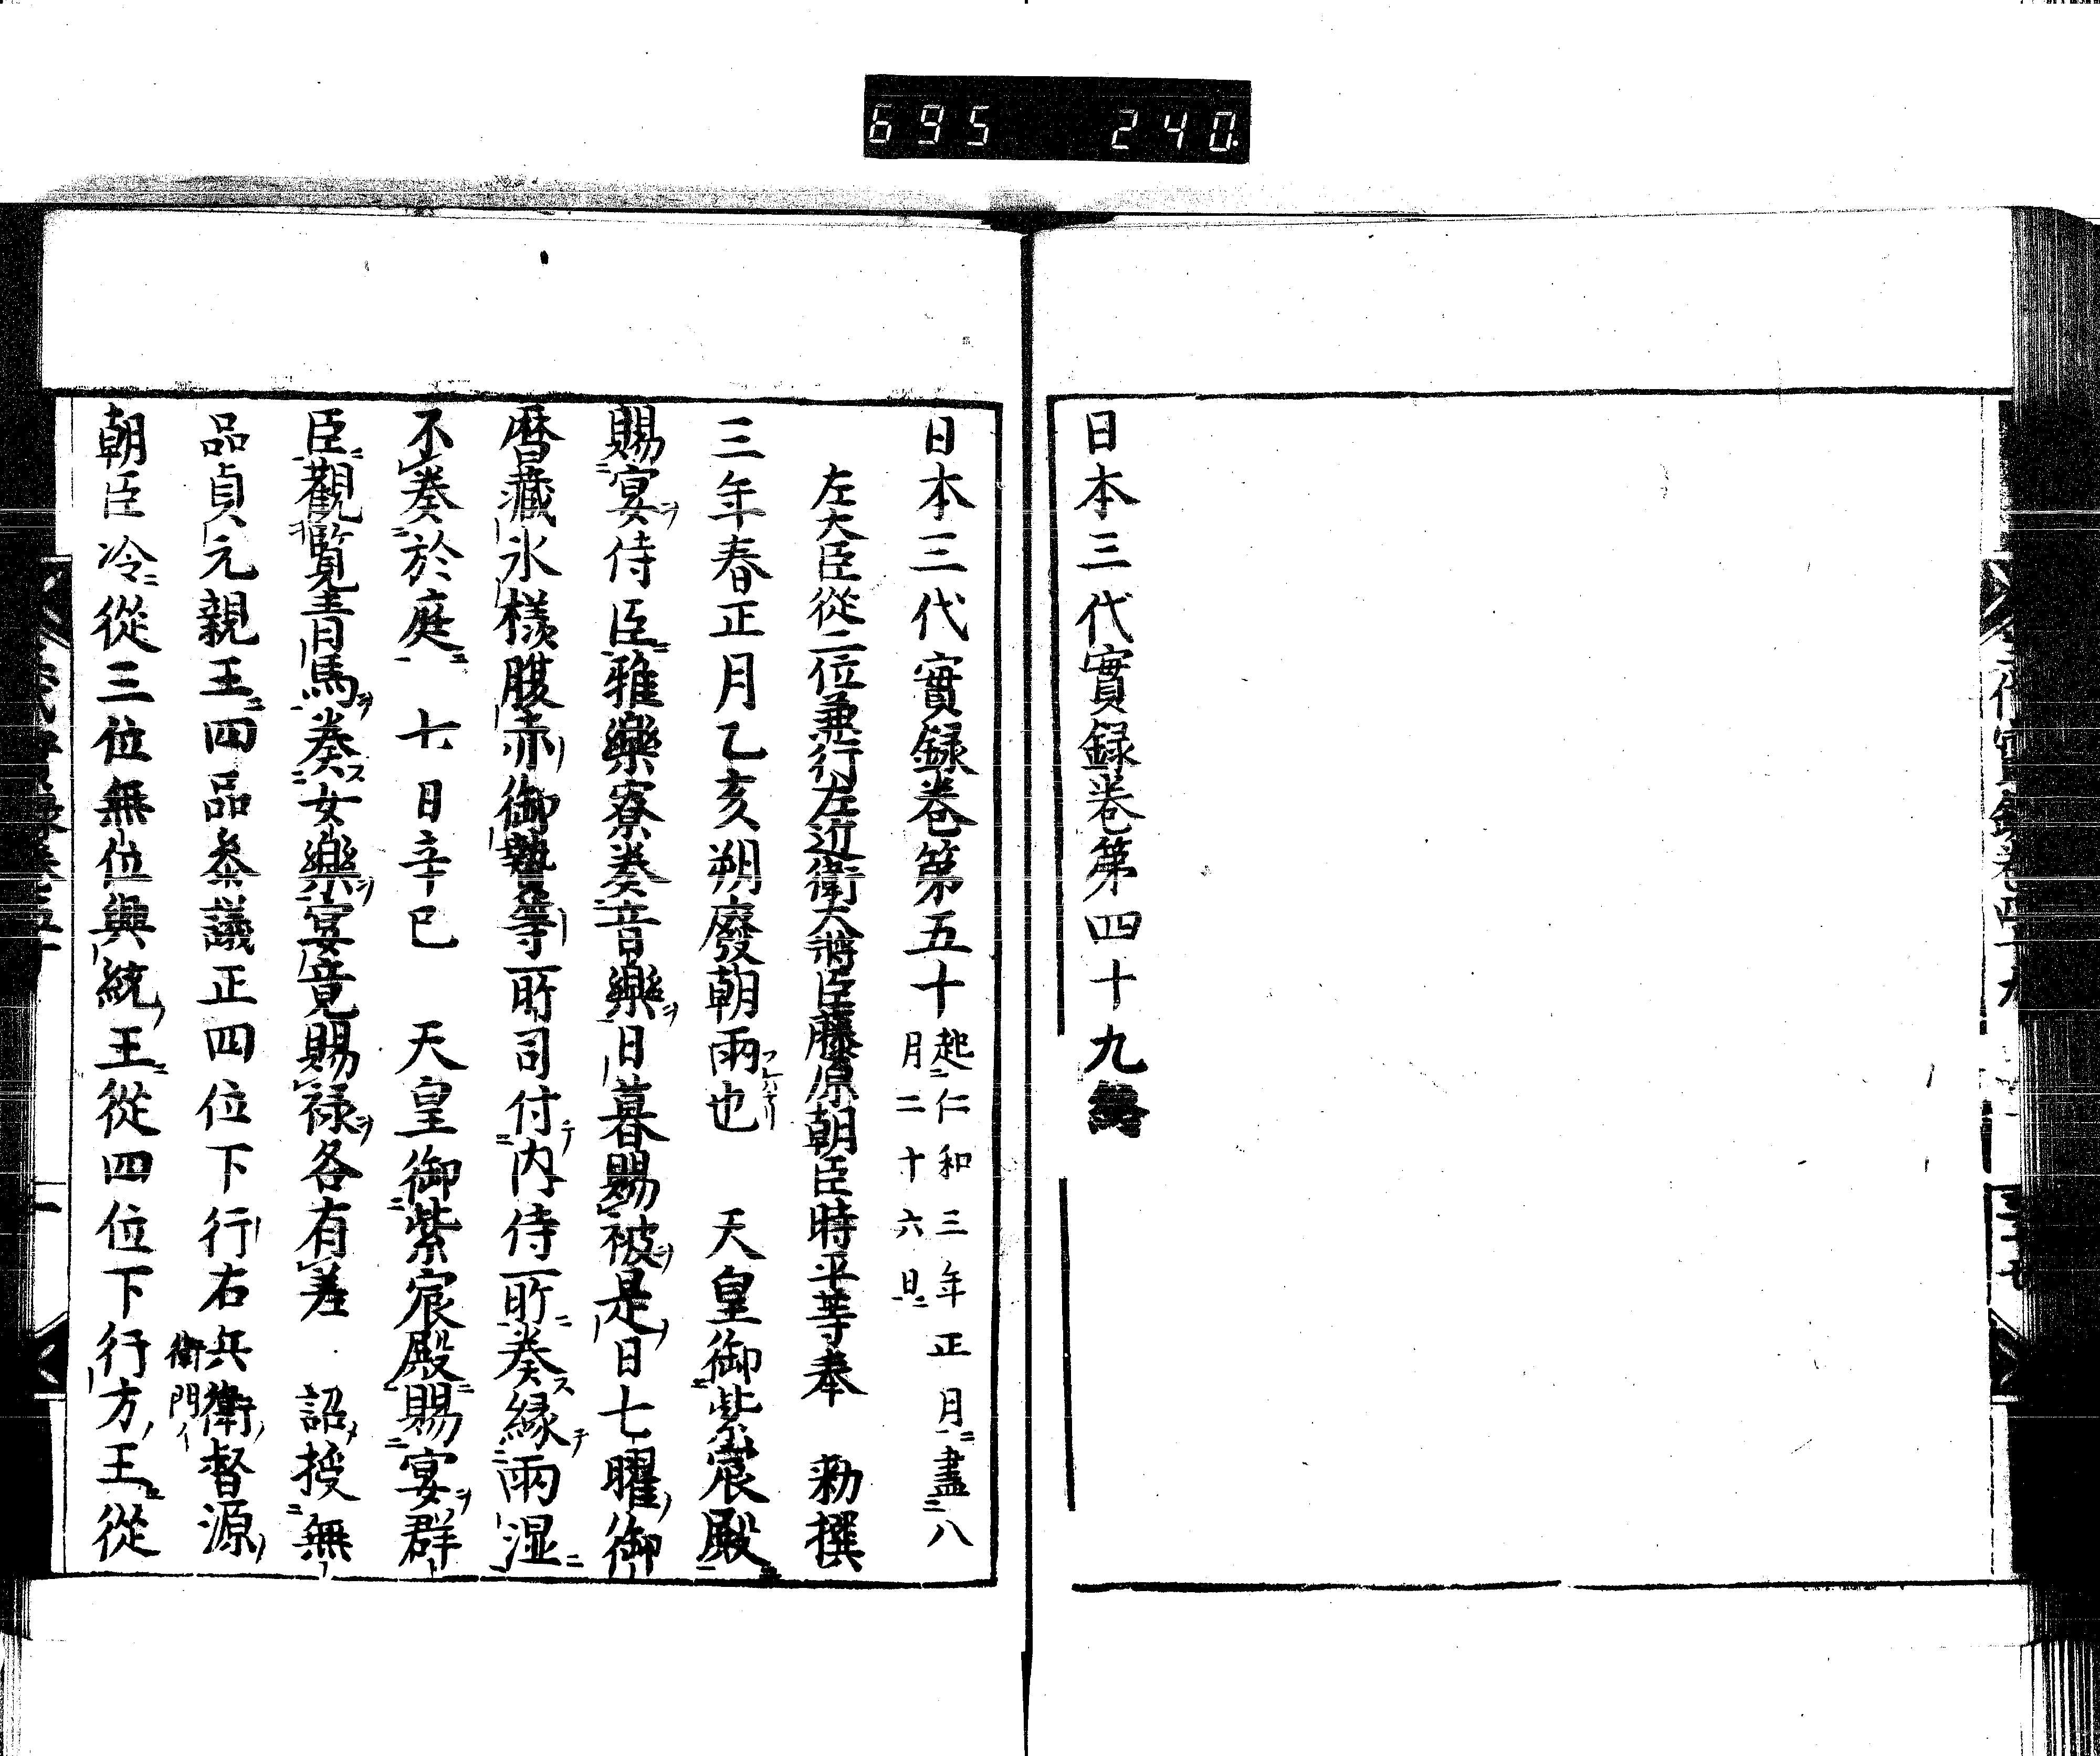 695 240
日本三代實録巻第四十九
日本三代實録巻第五十
起仁和三年正月盡八
月二十六日
左大臣從二位兼行左近衛大將臣藤原朝臣時平等奉 勅撰
三年春正月乙亥朔廢朝雨也 天皇御紫宸殿
賜宴侍臣雅樂寮奏音樂日暮賜被是日七曜御
暦藏氷樣腹赤御贄等所司付内侍所奏縁雨湿
不奏於庭 七日辛巳 天皇御紫宸殿賜宴群
臣觀覧青馬奏女樂宴竟賜禄各有差 詔授無
品貞元親王四品叅議正四位下行右兵衛督源
衛門イ
朝臣冷從三位無位興統王從四位下行方王從